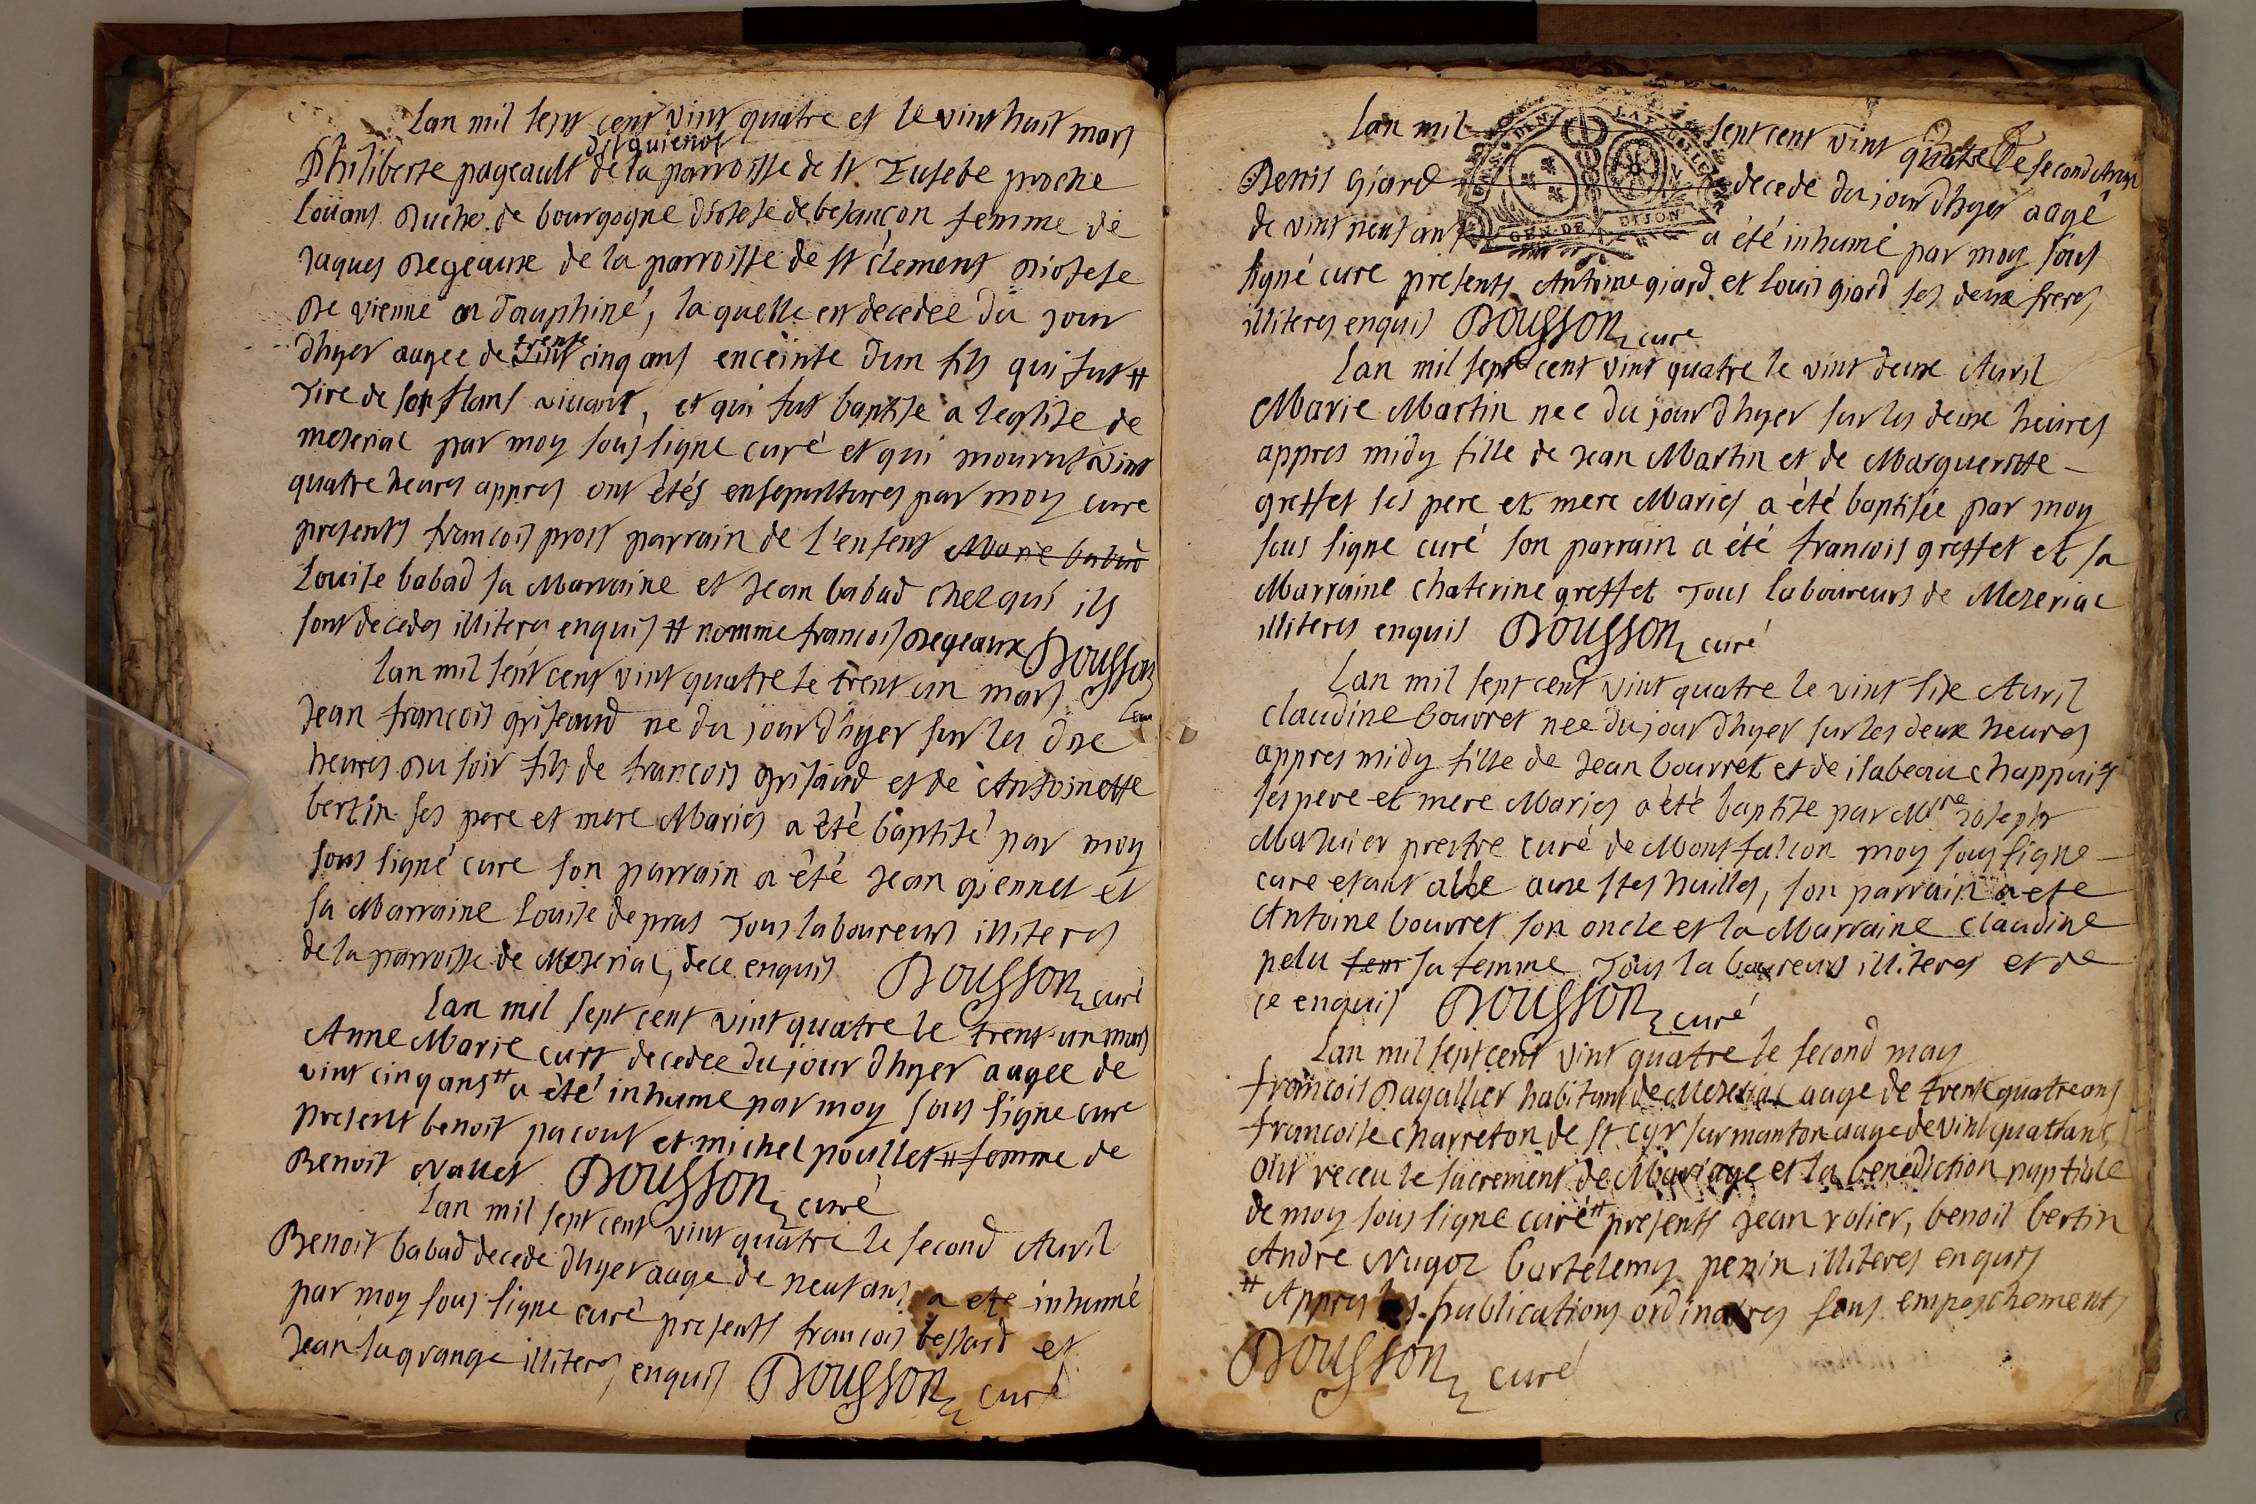 Lan mil sept cent vint quatre et le vint huit mars
dit quienot
Philiberte pageault de la parroisse de st Eusebe proche
Loüans Duche de bourgogne diosese de besançon femme de
Jaques Degeaux de la parroisse de st clement Diosese
De vienne en Dauphiné, laquelle est decedee du jour
trente
dhyer aagee de cinq ans enceinte dun fils qui fut #
tire de son flans vivant, et qui fut baptise a leglise de
mezeriac par moy sousigne curé et qui mourut vint
quatre heures appres ont étés ensepultures par moy cure
presents francois prost parrain de l'enfent Marie babad
Louise babad sa Marraine et Jean babad chez qui ils
sont decedes illiteres enquis # nomme francois Degeaux Dousson
Lan mil sept cent vint quatre le trent un mars
Jean francois griseaud né du jour dhyer sur les dix
heures du soir fils de francois grisaud et de Antoinette
bertin ses pere et mere Maries a été baptisé par moy
sous signé cure son parrain a été Jean giennet et
sa Marraine Louise depras tous laboureurs illiteres
de la parroisse de Mezeriac, dece enquis Dousson curé
Lan mil sept cent vint quatre le trent un mars
Anne Marie curt decedee du jour dhyer aagee de
vint cinq ans # a été inhume par moy sous signe cure
present benoit pacout et michel poullet # femme de
Benoit Nallet Dousson curé
Lan mil sept cent vint quatre le second Avril
Benoit babad decede dhyer aage de neuf ans a ete inhumé
par moy sous signe curé presents francois bessard et
Jean lagrange illiteres enquis Dousson curé
Lan mil sept cent vint quatre le second Avril
Denis Giard decede du jour dhyer aagé
de vint neuf ans a été inhumé par moy sous
signé cure presents Antoine giard et Louis giard ses deux freres
illiteres enquis Dousson cure
GEN · DE DIJON
Lan mil sept cent vint quatre le vint deux Avril
Marie Martin nee du jour dhyer sur les deux heures
appres midy fille de Jean Martin et de Margueritte
greffet ses pere et mere Maries a été baptisée par moy
sous signe curé son parrain a été francois greffet et sa
Marraine chaterine greffet tous laboureurs de Mezeriac
illiteres enquis Dousson curé
Lan mil sept cent vint quatre le vint six Avril
claudine bouvret nee du jour dhyer sur les deux heures
appres midy fille de Jean bouvret et de isabeau chappuis
ses pere et mere Maries a été baptise par Mre Joseph
Mazuier prestre curé de Montfalcon moy sous signe
cure etant alle aux stes huilles, son parrain a ete
Antoine bouvret son oncle et la Marraine claudine
pelu fem sa femme tous laboureurs illiteres et de
ce enquis Dousson curé
Lan mil sept cent vint quatre le second may
francois Dagallier habitant de Mezeriac aage de trent quatre ans
francoise charreton de st cyr sur manton aage de vint quattans
ont receu le sacrement de Mariage et la benediction nuptiale
de moy sous signe curé # presents Jean rolier, benoit bertin
Andre Nugoz bartelemy penin illiteres enquis
# Appres les publications ordinaires sans empeschements
Dousson curé